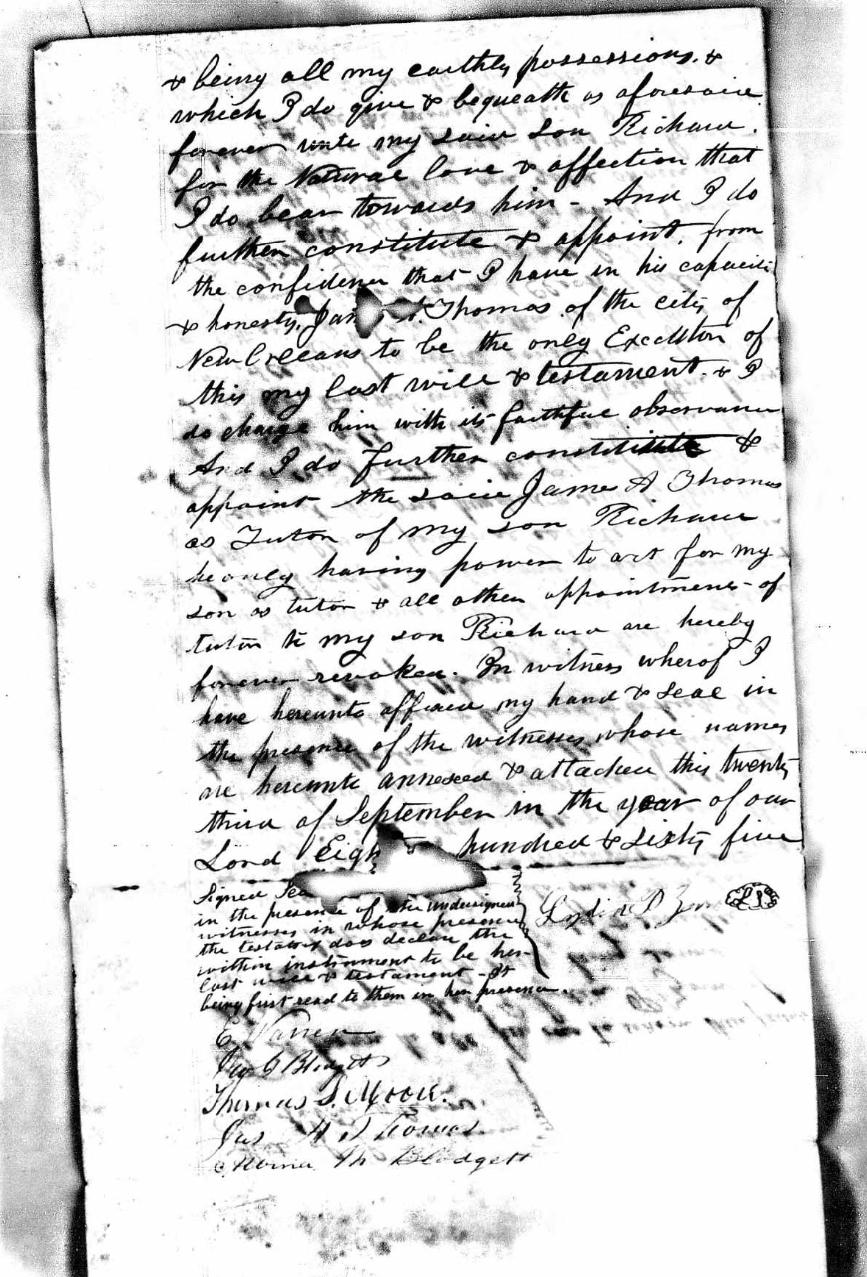 & being all my earthly possessions. &
which I do give & bequeath as aforesaid
forever unto my said son Richard.
for the Natural love & affection that
I do bear towards him - And I do
further constitute & appoint, from
the confidence that I have in his capacity
& honesty, Jam A. Thomas of the city of
New Orleans to be the only Executor of
this my last will & testament. & I
do charge him with its faithful observance
And I do further constitute &
appoint the said James A Thomas
as Tutor of my son Richard
he only having power to act for my
son as tutor & all other appointments of
tutor to my son Richard are hereby
forever revoked. In witness wherof I
have hereunto affixed my hand & seal in
the presence of the witnesses whose names
are hereunto annexed & attached this twenty
third of September in the year of our
Lord Eigh hundred & sixty five
Signed Sea
in the presence of the undersigned
witnesses in whose presence
the testatrix does declare the
within instrument to be her
last will & testament - it
being first read to them in her presence.
Lydia P LS
E Warren
Geo Blodgett
Thomas S. Moore.
Jas A Thomas
Th Blodgett